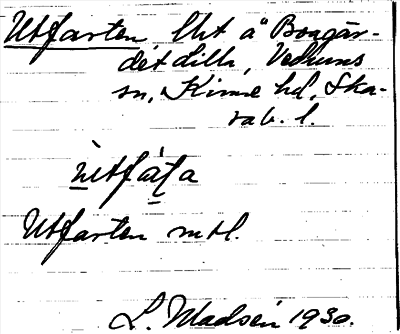 Utfarten lht å Bongår-
det dith, Vedums
sn, Kinne hd, Ska-
rab. l.
ùtfáṭa
Utfarten mtl.
L. Madsén 1930.